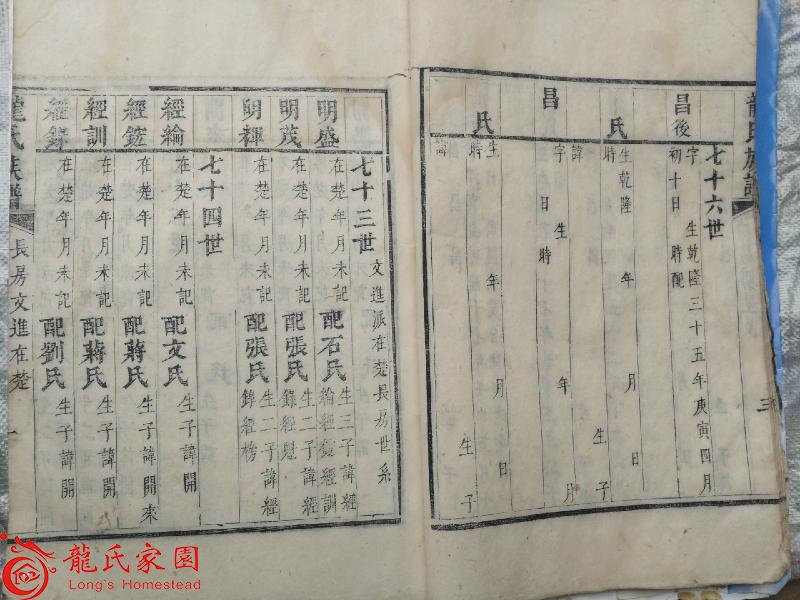 龍氏族譜
三
七十六世
昌後 字 生乾隆三十五年庚寅四月
初十日 時配
氏 生乾隆 年 月 日
時 生子
諱
昌 字 生 年 月
日 時
氏 生 年 月 日
時 生子
諱
七十三世 文進派在楚長房世系
明盛 在楚年月未記 配石氏 生三子諱經
綸經鎡經訓
明茂 在楚年月未記 配張氏 生二子諱經
錄經
明輝 在楚年月未記 配張氏 生二子諱經
經榜
七十四世
經綸 在楚年月未記 配文氏 生子諱開
經鎡 在楚年月未記 配蔣氏 生子諱開來
經訓 在楚年月未記 配蔣氏 生子諱開
經錄 在楚年月未記 配劉氏 生子諱開
龍氏族譜 長房文進在楚 一
龍氏家園
Long's Homestead